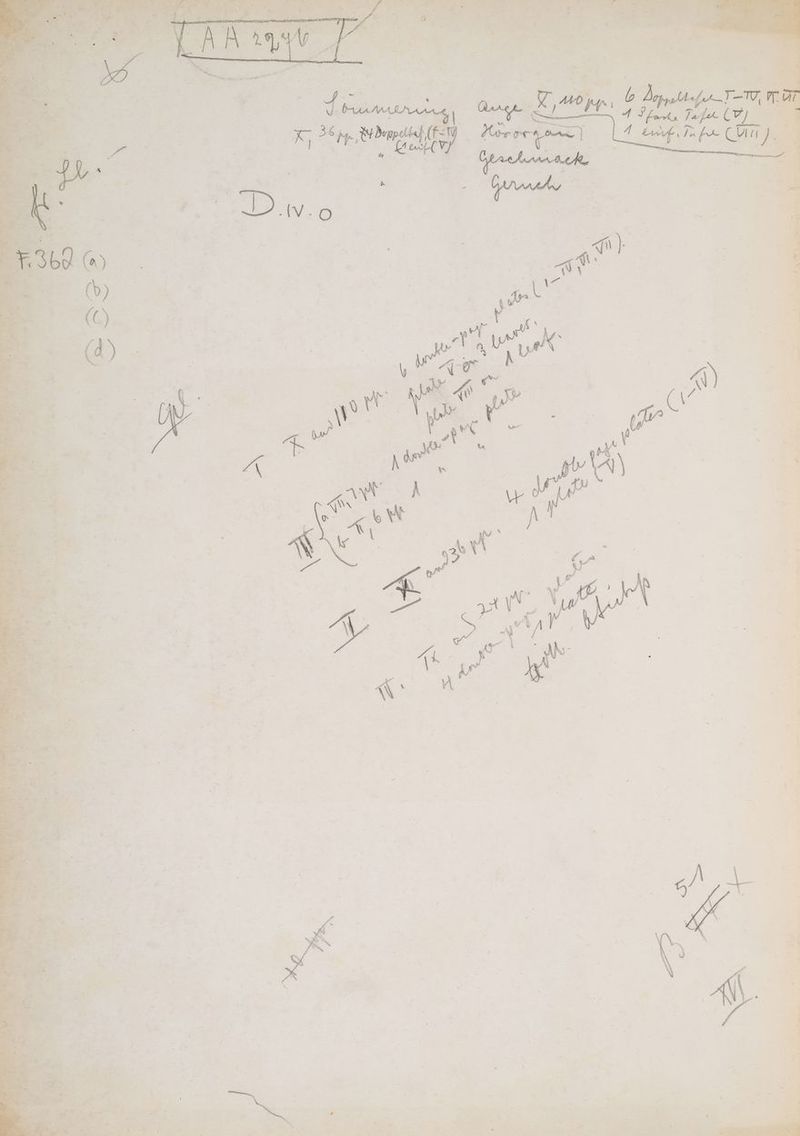 AA 2276
Sömmering, Auge X, 110 pp., 6 Doppeltafeln I–IV, VI. VII
1 3fache Tafel (V)
X, 36 pp., 4 Doppeltaf. (I–IV) Hörorgan 1 einf. Tafel (VIII)
" 1 einf. (V)
Geschmack
" Geruch
D.IV.O
F. 362 (a)
(b)
(c)
(d)
I X and 110 pp. 6 double-page plates (I–IV, VI, VII).
plate V on 3 leaves.
plate VIII on 1 leaf.
III a VII, 7 pp. 1 double-page plate
b II, 6 pp 1 " " "
II X and 36 pp. 4 double page plates (I–IV)
1 plate (V)
IV. IX and 24 pp.
4 double-page plates.
1 plate
51
B X
XVI.